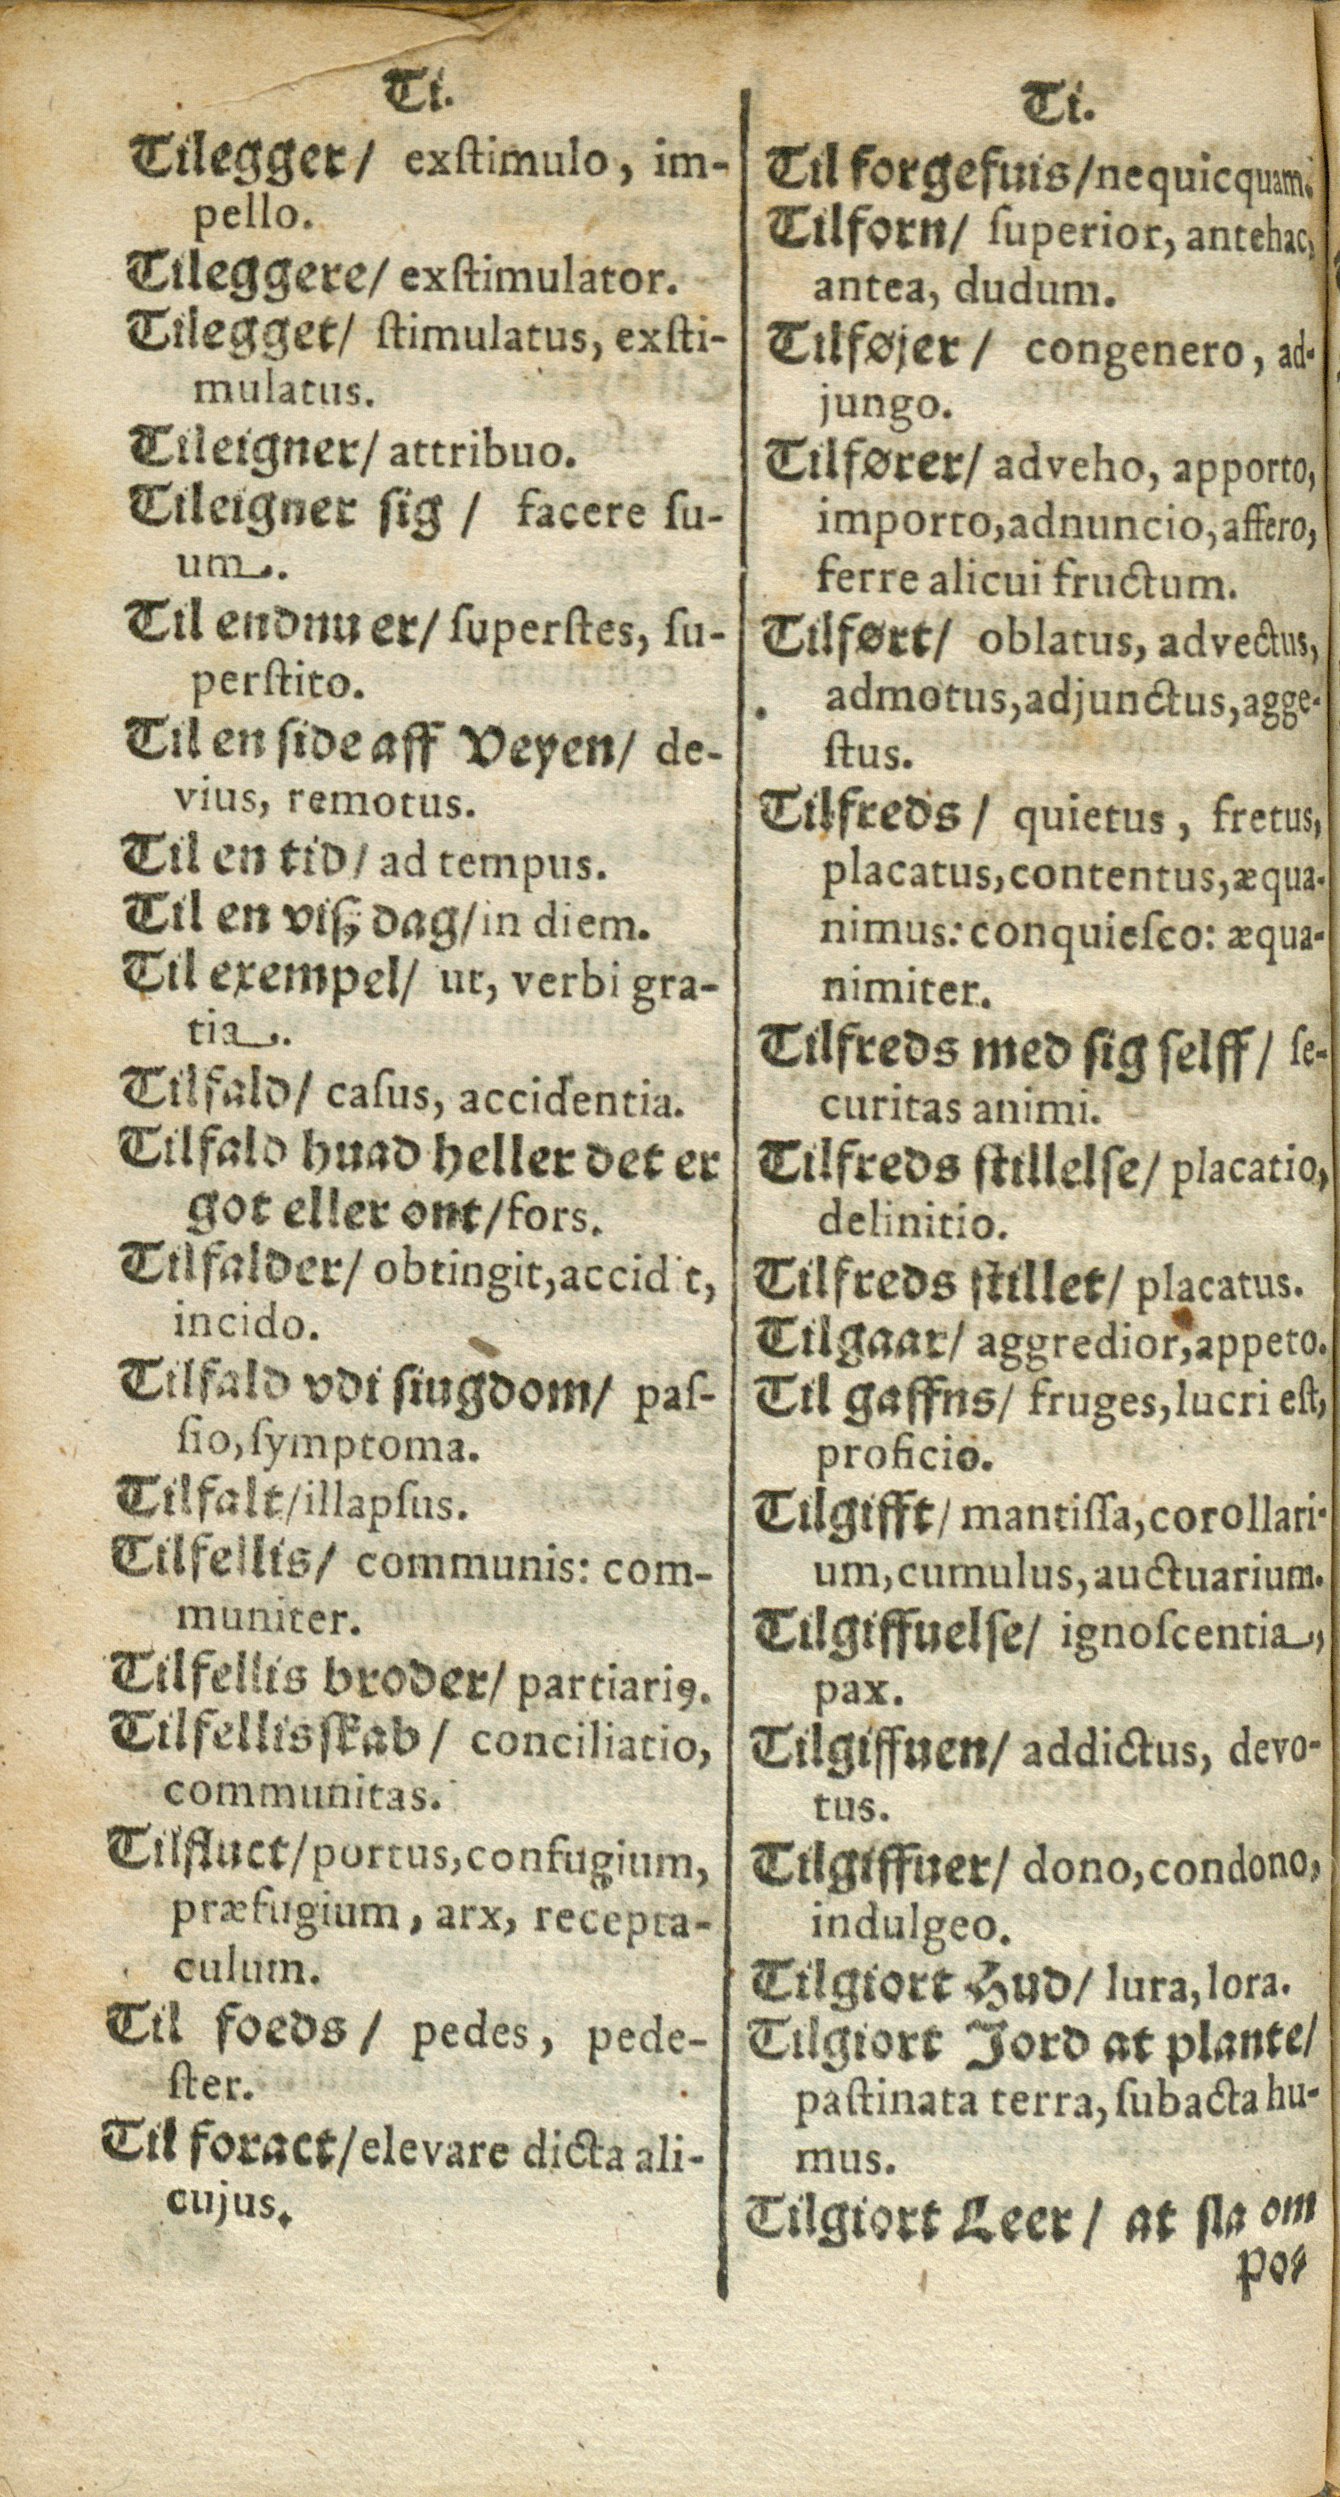 Ti.
Tilegger/ exſtimulo, im-
pello.
Tileggere/ exſtimulator.
Tilegget/ ſtimulatus, exſti-
mulatus.
Tileigner/ attribuo.
Tileigner sig / facere ſu-
um.
Til endnu er/ ſuperſtes, ſu-
perſtito.
Til en ſide aff Veyen/ de-
vius, remotus.
Til en tid/ ad tempus.
Til en viſz dag/in diem.
Til exempel/ ut, verbi gra-
tia.
Tilfald/ caſus, accidentia.
Tilfald huad heller det er
got eller ont/fors.
Tilfalder/ obtingit,accid t,
incido.
Tilfald vdi siugdom/ paſ-
ſio,ſymptoma.
Tilfalt/illapſus.
Tilfellis/ communis: com-
muniter.
Tilfellis broder/ partiariꝰ.
Tilfellisſkab/ conciliatio,
communitas.
Tilfluct/portus,confugium,
præfugium, arx, recepta-
culum.
Til foeds/ pedes, pede-
ſter.
Til foract/elevare dicta ali-
cujus.
Ti.
Til forgefuis/nequicquam.
Tilforn/ ſuperior, antehac,
antea, dudum.
Tilføjer/ congenero, ad-
jungo.
Tilfører/ adveho, apporto,
importo,adnuncio,affero,
ferre alicui fructum.
Tilført/ oblatus, advectus,
admotus,adjunctus,agge-
ſtus.
Tilfreds/ quietus, fretus,
placatus,contentus,æqua-
nimus: conquieſco: æqua-
nimiter.
Tilfreds med sig ſelff/ ſe-
curitas animi.
Tilfreds ſtillelſe/ placatio,
delinitio.
Tilfreds ſtillet/ placatus.
Tilgaar/ aggredior,appeto.
Til gaffns/ fruges,lucri eſt,
proficio.
Tilgifft/ mantiſſa,corollari-
um,cumulus,auctuarium.
Tilgiffuelſe/ ignoſcentia,
pax.
Tilgiffuen/ addictus, devo-
tus.
Tilgiffuer/ dono,condono,
indulgeo.
Tilgiort Hud/ lura,lora.
Tilgiort Jord at plante/
paſtinata terra,ſubacta hu-
mus.
Tilgiort Leer/ at ſla om
po-